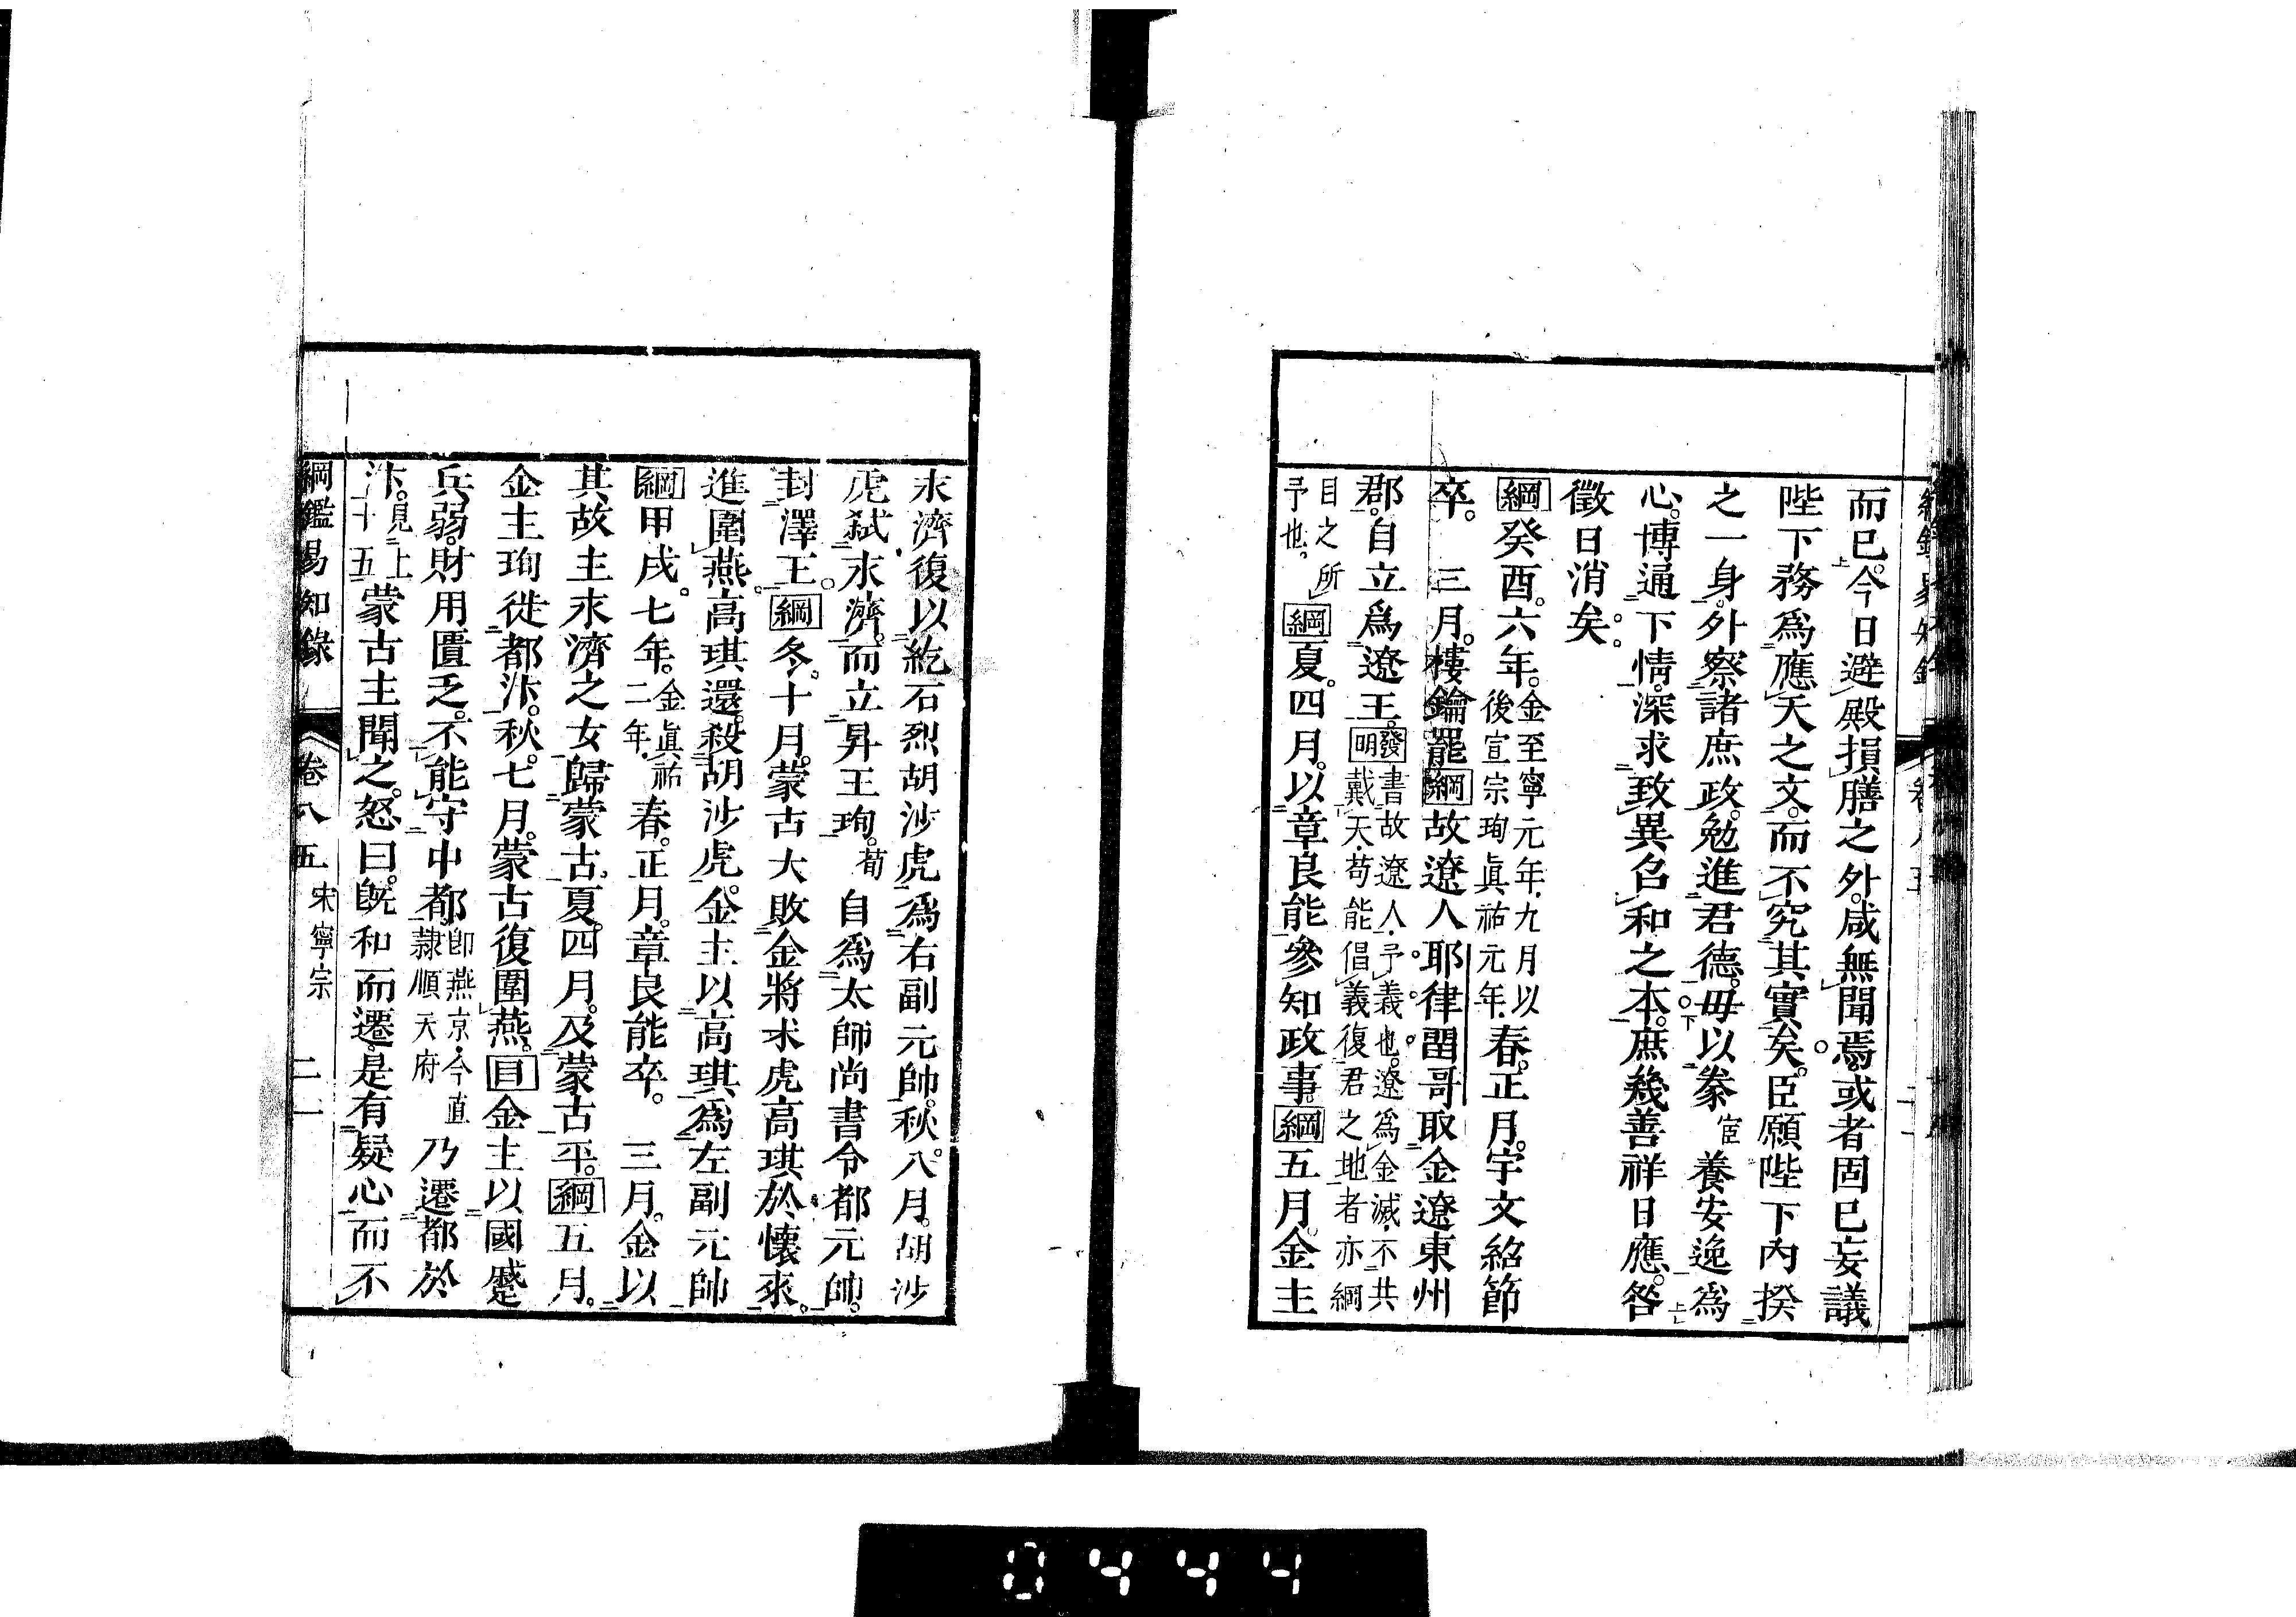 而已。今日避殿損膳之外。咸無聞焉。或者固已妄議
陛下務爲應天之文。而不究其實矣。臣願陛下內揆
之一身。外察諸庶政。勉進君德。毋以豢宦養安逸爲
心。博通下情。深求致異召和之本。庶幾善祥日應。咎
徵日消矣。
綱癸酉。六年。金至寧元年。九月以後宣宗珣眞祐元年。春。正月。宇文紹節
卒。 三月。樓鑰罷綱故遼人耶律留哥取金遼東州
郡。自立爲遼王。發明書故遼人。予義也。遼爲金滅。不共戴天。苟能倡義復君之地者亦綱
目之所予也。綱夏。四月。以章良能參知政事綱五月。金主
永濟復以紇石烈胡沙虎爲右副元帥。秋。八月。胡沙
虎弑永濟。而立昇王珣。荀自爲太師尚書令都元帥。
封澤王。綱冬。十月。蒙古大敗金將朮虎高琪於懷來。
進圍燕。高琪還。殺胡沙虎。金主以高琪爲左副元帥
綱甲戌。七年。金眞祐二年。春。正月。章良能卒。 三月。金以
其故主永濟之女歸蒙古。夏。四月。及蒙古平。綱五月。
金主珣徙都汴。秋。七月。蒙古復圍燕。目金主以國蹙
兵弱。財用匱乏。不能守中都。卽燕京。今直隸順天府乃遷都於
汴。見上十五蒙古主聞之。怒曰。旣和而遷。是有疑心而不
綱鑑易知錄 卷八五 宋寧宗 二一
0444